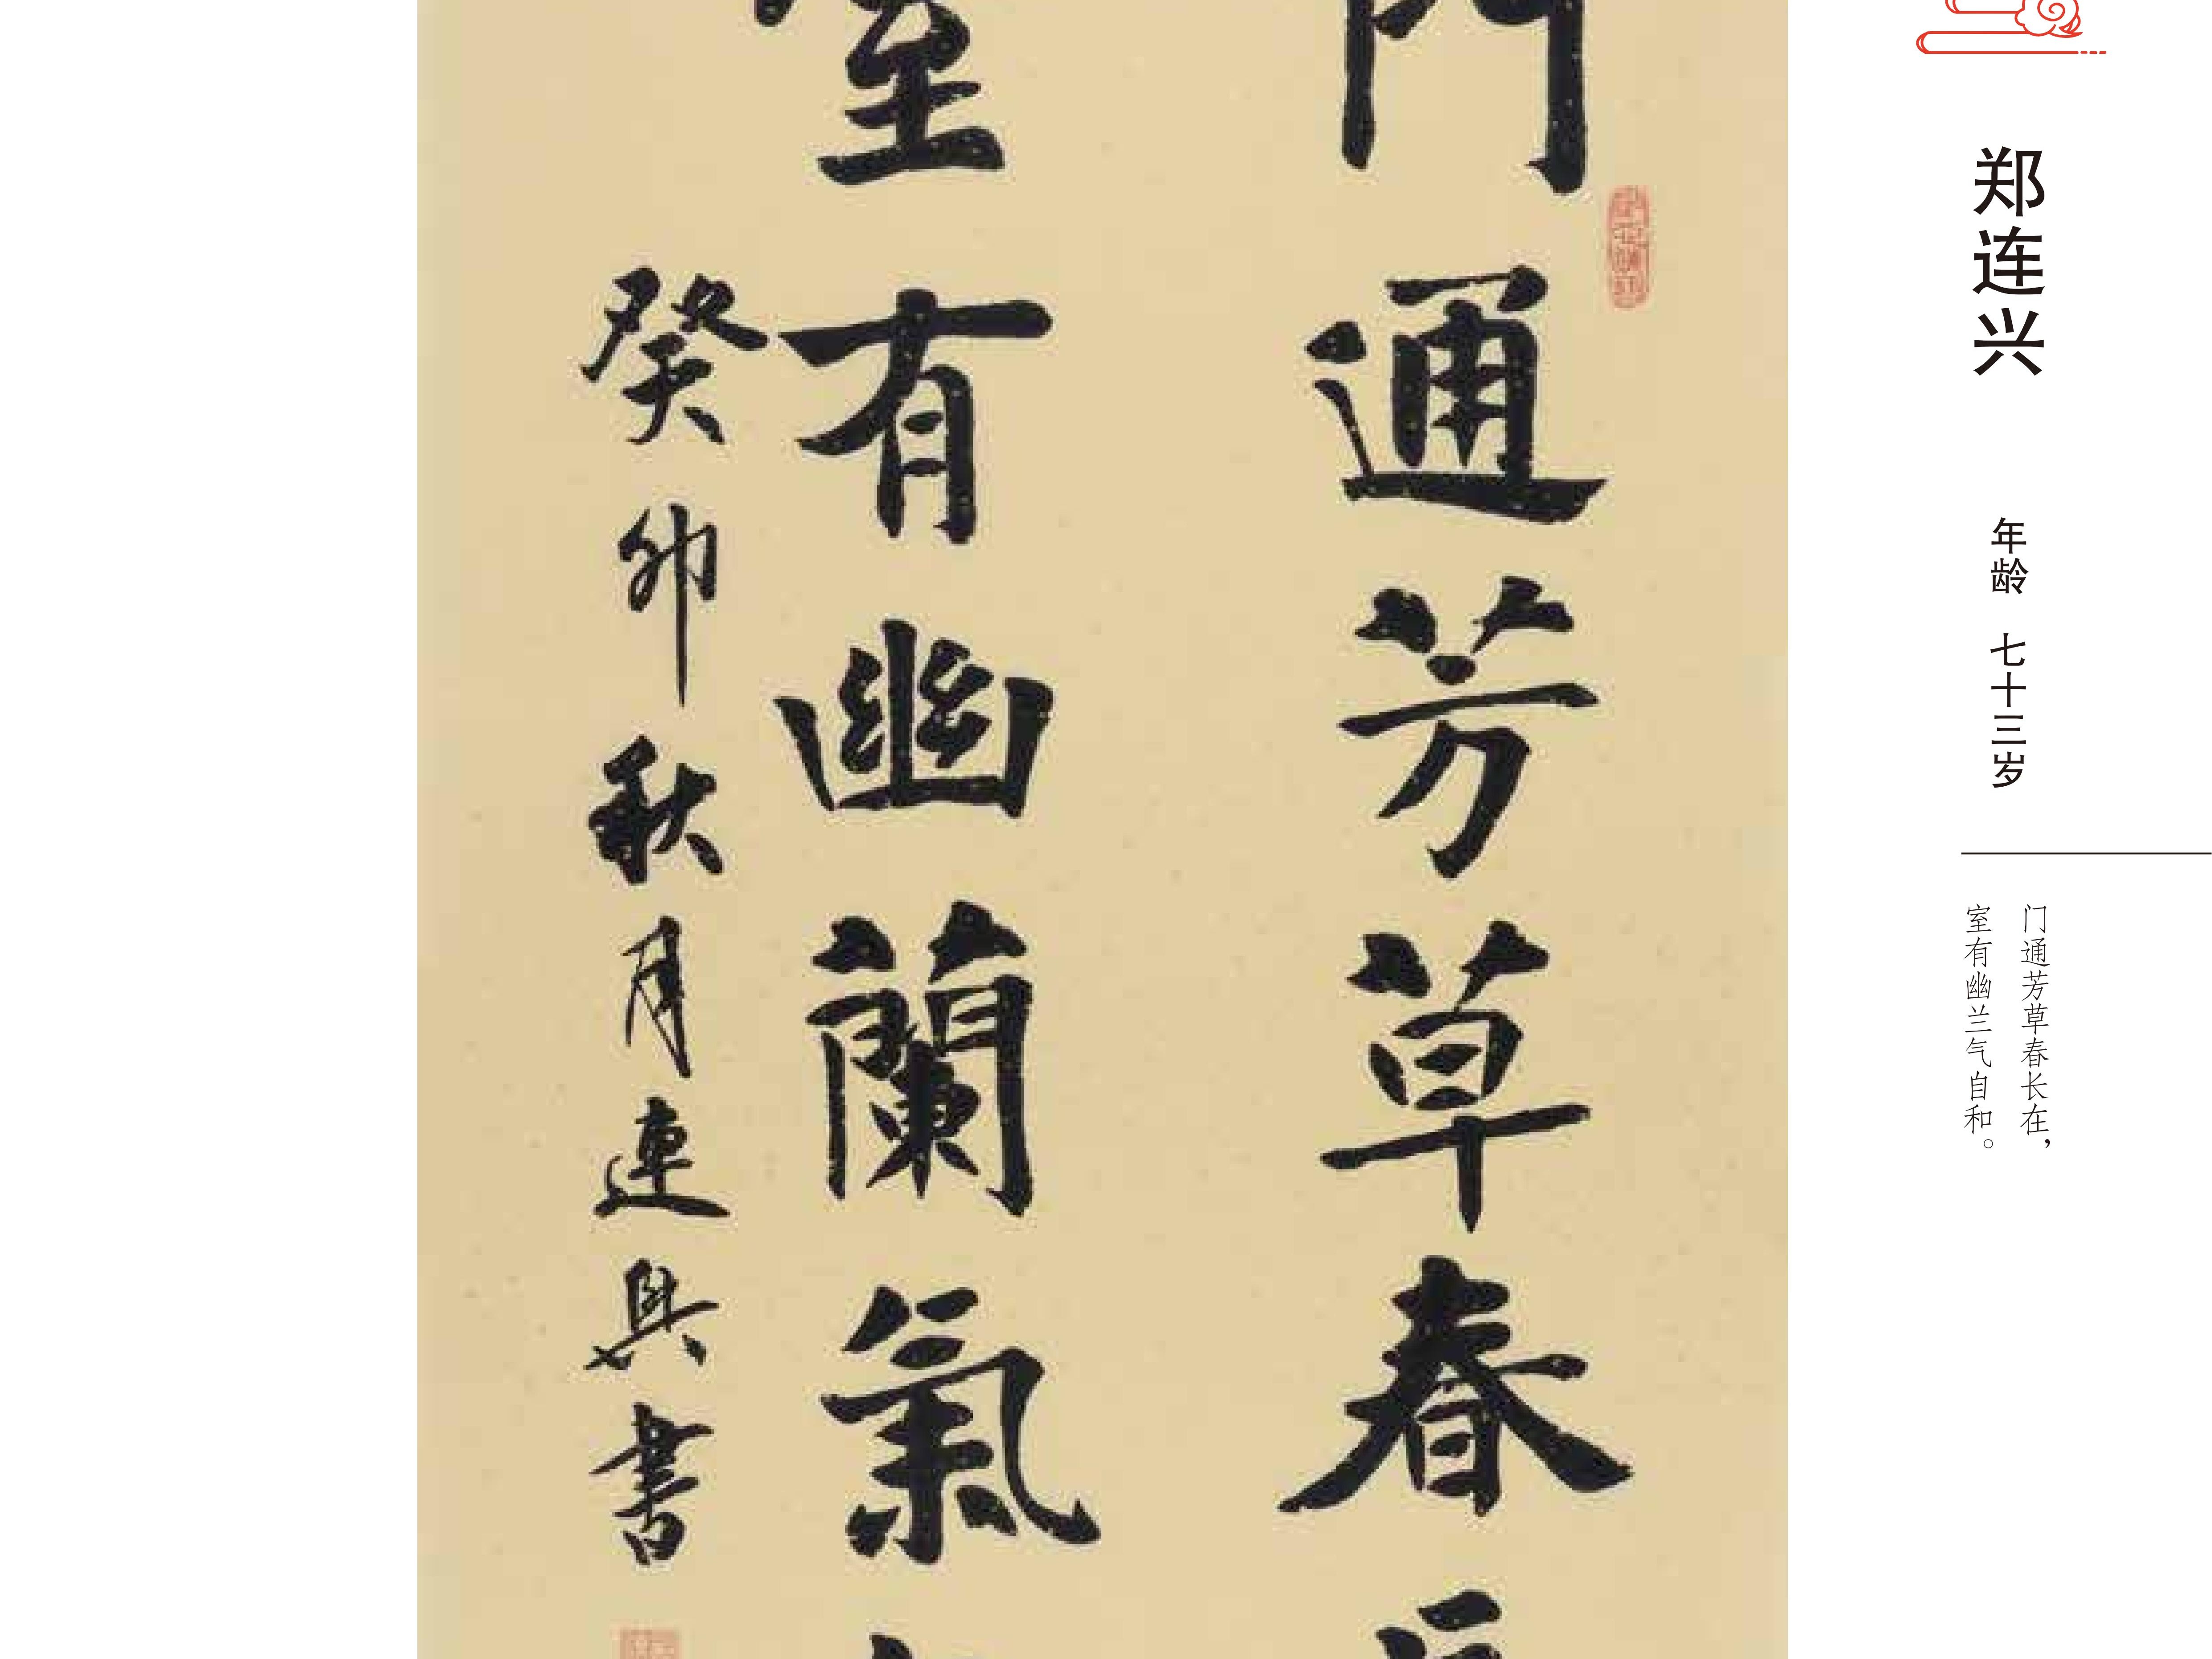 郑连兴
年龄 七十三岁
门通芳草春长在，
室有幽兰气自和。
門通芳草春長
室有幽蘭氣
癸卯秋月連興書